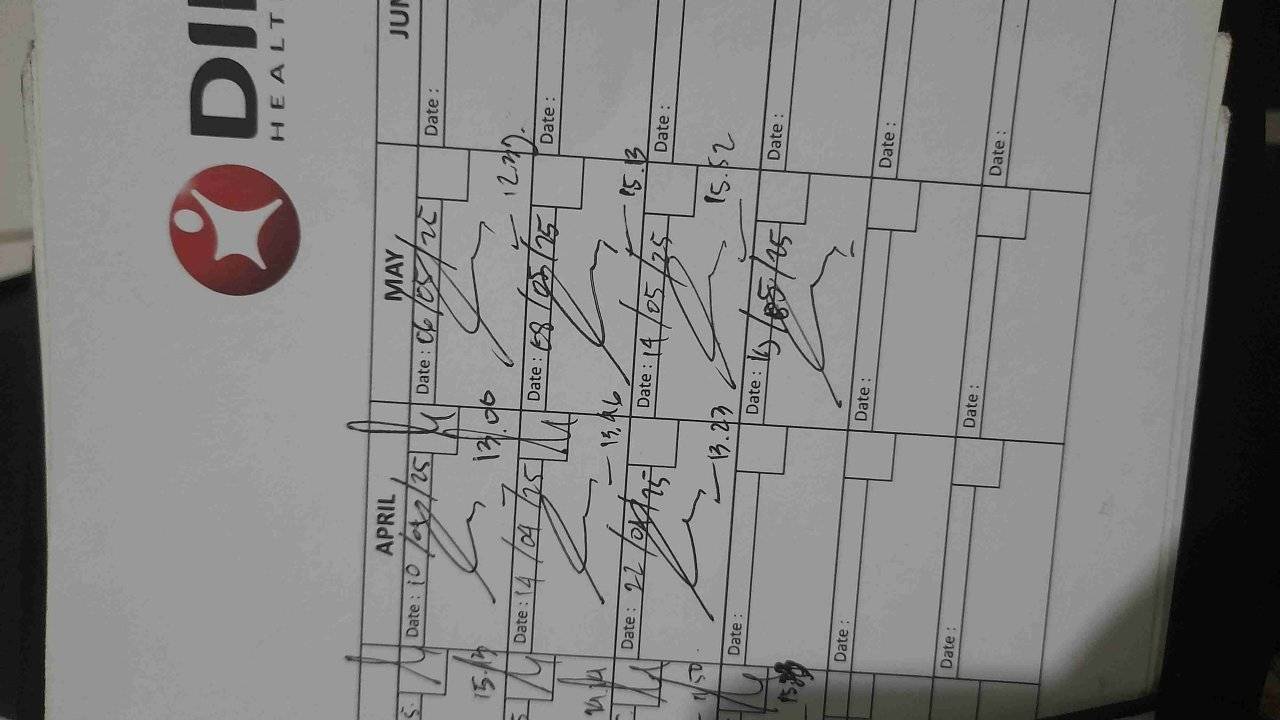 DI
HEALT
APRIL
MAY
JUN
Date : 10/04/25
Date : 06/05/25
Date :
15.13
13.00
12.37.
Date : 14/04/25
Date : 08/05/25
Date :
13.46
15.13
Date : 22/04/25
Date : 14/05/25
Date :
13.23
15.52
Date :
Date : /05/25
Date :
Date :
Date :
Date :
Date :
Date :
Date :